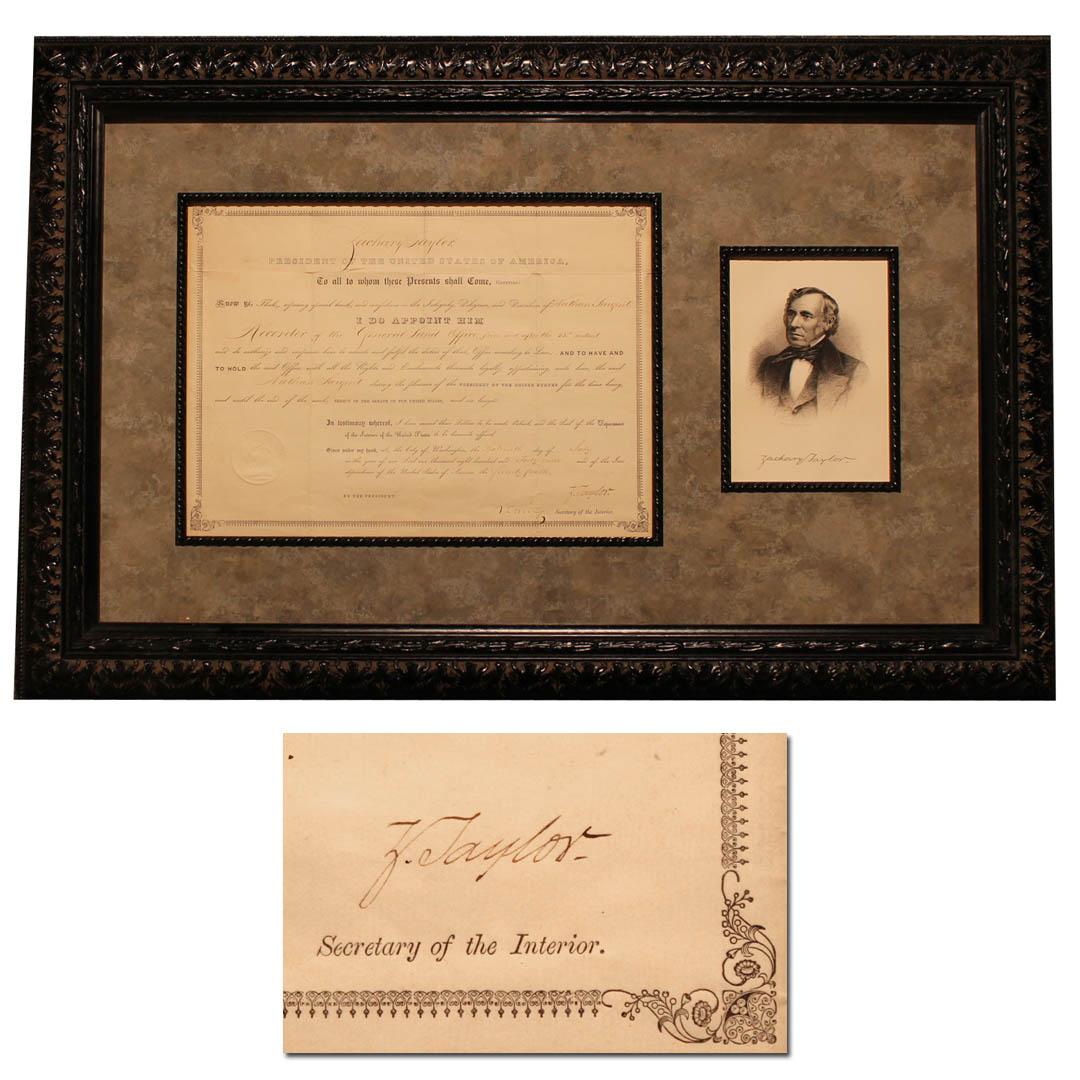 Zachary Taylor
PRESIDENT OF THE UNITED STATES OF AMERICA,
To all to whom these Presents shall Come, GREETING:
Know Ye: That, reposing special trust and confidence in the Integrity, Diligence, and Discretion of Nathan Sargent
I DO APPOINT HIM
Recorder of the General Land Office, from and after the instant
and do authorize and empower him to execute and fulfil the duties of that Office according to Law; AND TO HAVE AND
TO HOLD the said Office, with all the Rights and Emoluments thereunto legally appertaining, unto him, the said
Nathan Sargent during the pleasure of the PRESIDENT OF THE UNITED STATES for the time being,
and until the end of the next SESSION OF THE SENATE OF THE UNITED STATES, and no longer.
In testimony whereof, I have caused these Letters to be made Patent, and the Seal of the Department
of the Interior of the United States to be hereunto affixed.
Given under my hand, at the City of Washington, the day of July
in the year of our Lord one thousand eight hundred and forty nine and of the Inde-
pendence of the United States of America the Seventy fourth.
Z. Taylor
BY THE PRESIDENT:
Secretary of the Interior.
Zachary Taylor.
Z. Taylor
Secretary of the Interior.